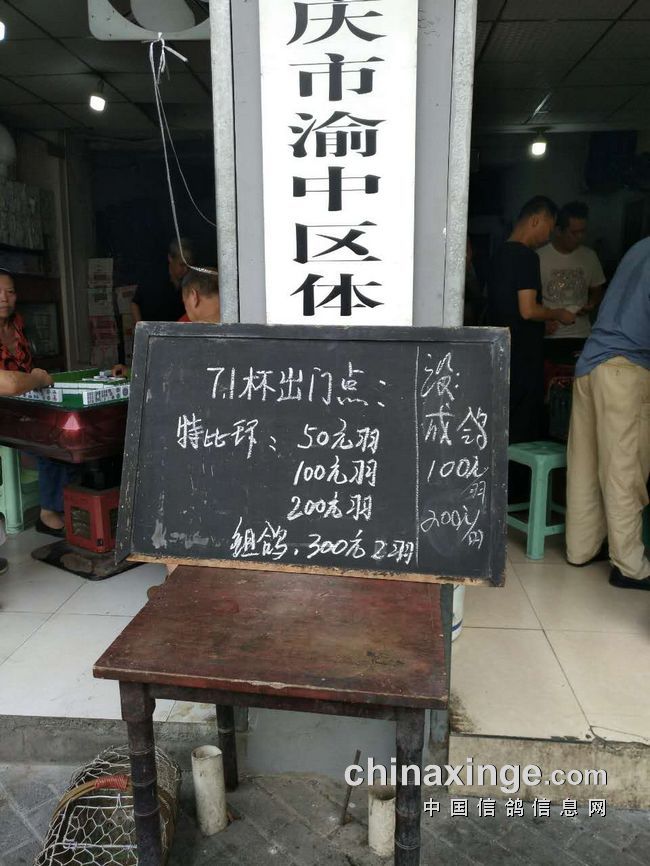 庆市渝中区体
7.1杯出门点:
特比环: 50元羽
100元羽
200元羽
组鸽. 300元2羽
没:
成鸽
100元
羽
200元
chinaxinge.com
中国信鸽信息网